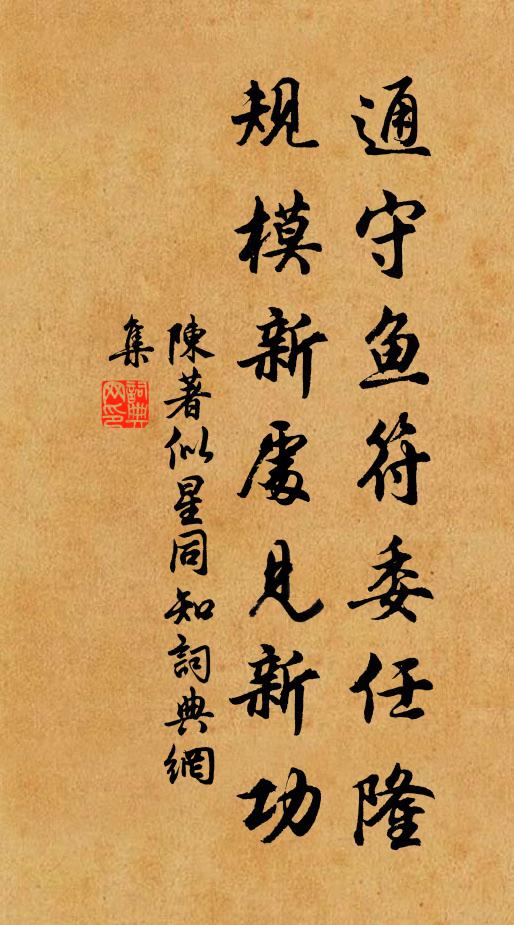 通守魚符委任隆
規模新處見新功
陳著似星同知詞典網
集
詞典
网印